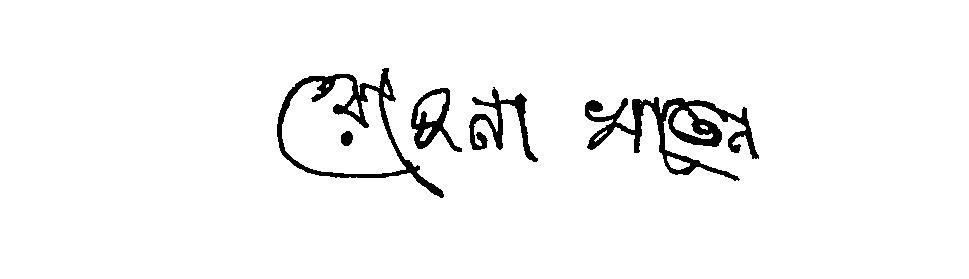 রোহেনা খাতুন